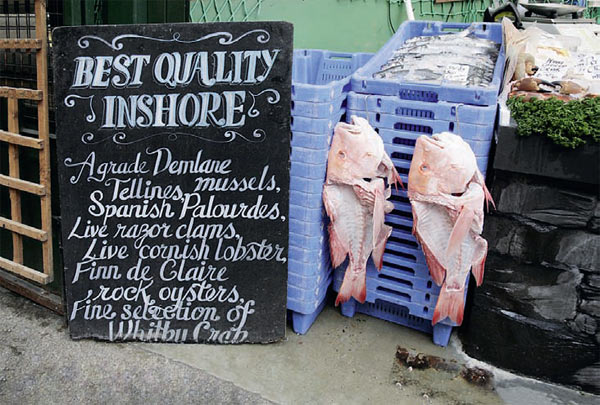 BEST QUALITY
INSHORE
A grade Demlane
Tellines, mussels,
Spanish Palourdes,
Live razor clams,
Live cornish lobster,
Finn de Claire
rock oysters,
Fine selection of
Whitby Crab